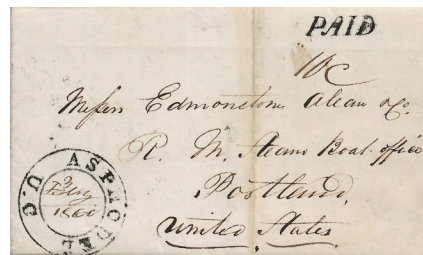 PAID
10c
Messrs Edmonstone Allan & Co.
R. M. Steam Boat office
Portland,
United States
ASPHODEL U.C
3 Feby
1860